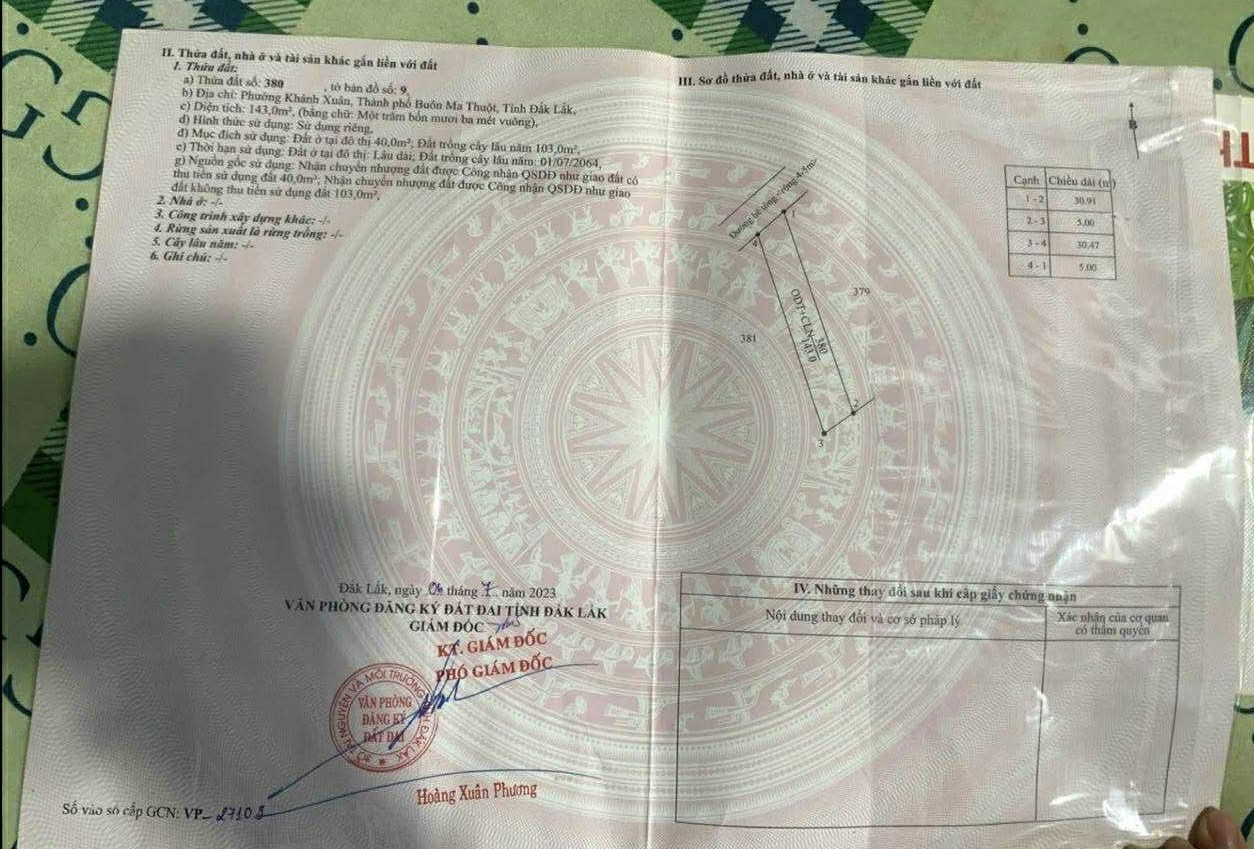 II. Thửa đất, nhà ở và tài sản khác gắn liền với đất
1. Thửa đất:
a) Thửa đất số: 380 , tờ bản đồ số: 9,
b) Địa chỉ: Phường Khánh Xuân, Thành phố Buôn Ma Thuột, Tỉnh Đắk Lắk,
c) Diện tích: 143,0m², (bằng chữ: Một trăm bốn mươi ba mét vuông),
d) Hình thức sử dụng: Sử dụng riêng,
đ) Mục đích sử dụng: Đất ở tại đô thị 40,0m²; Đất trồng cây lâu năm 103,0m²,
e) Thời hạn sử dụng: Đất ở tại đô thị: Lâu dài; Đất trồng cây lâu năm: 01/07/2064,
g) Nguồn gốc sử dụng: Nhận chuyển nhượng đất được Công nhận QSDĐ như giao đất có
thu tiền sử dụng đất 40,0m²; Nhận chuyển nhượng đất được Công nhận QSDĐ như giao
đất không thu tiền sử dụng đất 103,0m²,
2. Nhà ở: -/-
3. Công trình xây dựng khác: -/-
4. Rừng sản xuất là rừng trồng: -/-
5. Cây lâu năm: -/-
6. Ghi chú: -/-
Đắk Lắk, ngày 06 tháng 7 năm 2023
VĂN PHÒNG ĐĂNG KÝ ĐẤT ĐAI TỈNH ĐẮK LẮK
GIÁM ĐỐC
KT. GIÁM ĐỐC
PHÓ GIÁM ĐỐC
SỞ TÀI NGUYÊN VÀ MÔI TRƯỜNG TỈNH ĐẮK LẮK
VĂN PHÒNG
ĐĂNG KÝ
ĐẤT ĐAI
Hoàng Xuân Phương
Số vào sổ cấp GCN: VP-27108
III. Sơ đồ thửa đất, nhà ở và tài sản khác gắn liền với đất
B
Đường bê tông, rộng 4-5m
1
4
379
381
ODT+CLN 380
143.0
2
3
Cạnh Chiều dài (m)
1 - 2 30.91
2 - 3 5.00
3 - 4 30.47
4 - 1 5.00
IV. Những thay đổi sau khi cấp giấy chứng nhận
Nội dung thay đổi và cơ sở pháp lý
Xác nhận của cơ quan
có thẩm quyền